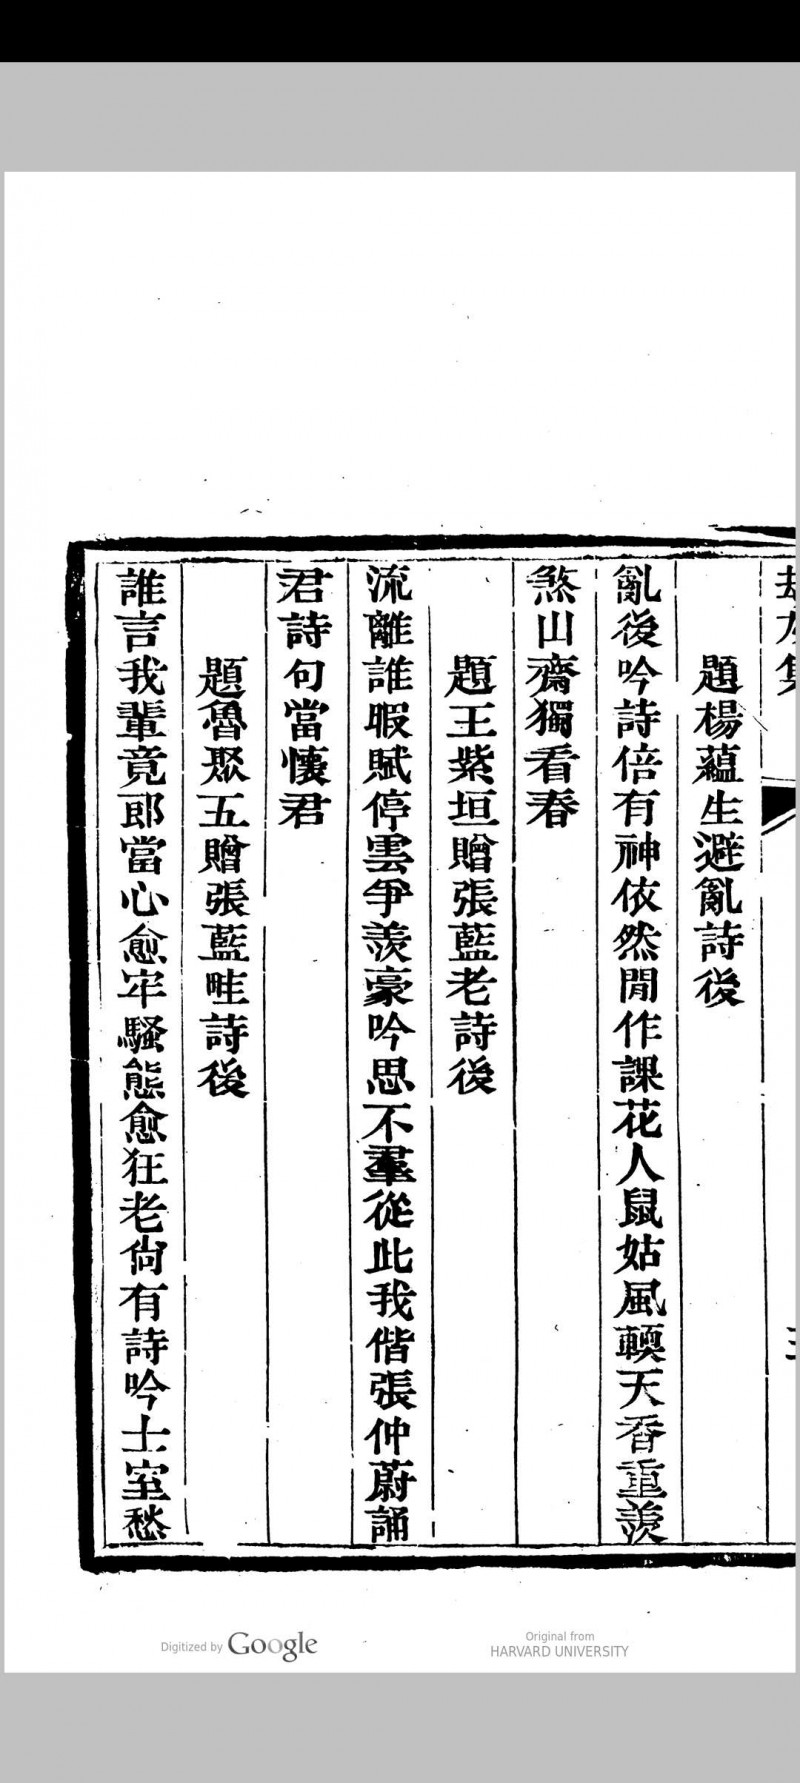 題楊蘊生避亂詩後
亂後吟詩倍有神依然閒作課花人鼠姑風輭天香重羨
煞山齋獨看春
題王紫垣贈張藍老詩後
流離誰暇賦停雲爭羨豪吟思不羣從此我偕張仲蔚誦
君詩句當懷君
題魯聚五贈張藍畦詩後
誰言我輩竟郎當心愈牢騷態愈狂老尙有詩吟士室愁
Digitized by Google
Original from
HARVARD UNIVERSITY